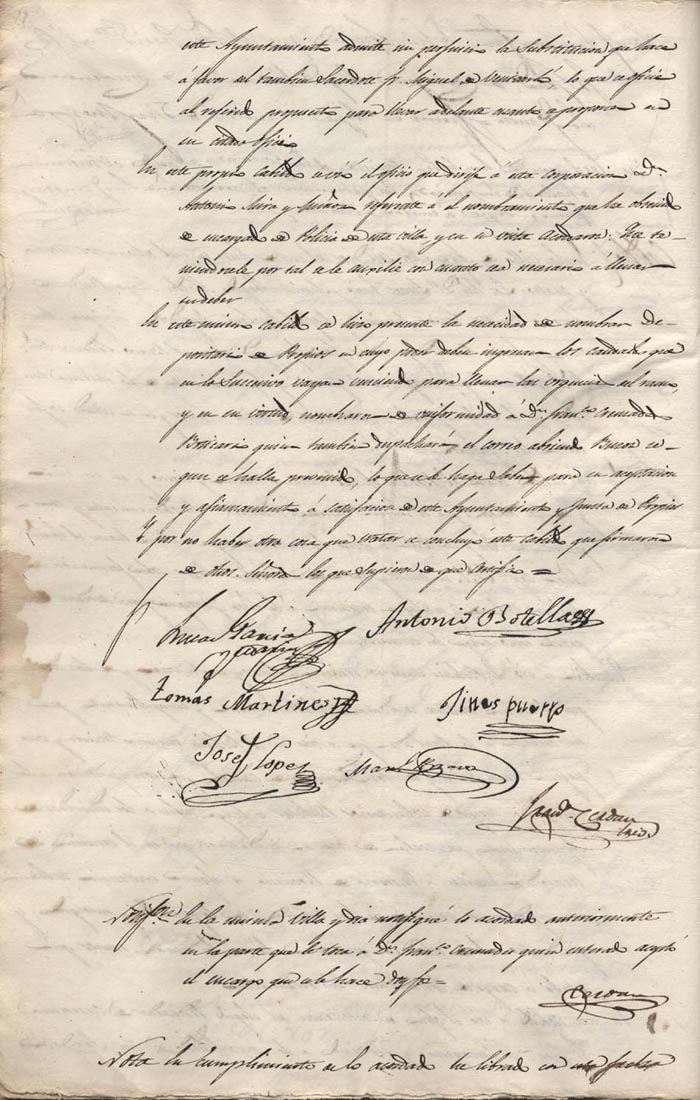 este Ayuntamiento admite sin perjuicio la Substitucion que hace
á favor del tambien Sacerdote fr. Miguel de lo que se oficie
al referido propuesto para llevar adelante cuanto se propone en
su citado oficio
En este propio Cabildo se vió el oficio que dirije á esta corporacion Dn.
Antonio Miro y Muñoz referente á el nombramiento que ha obtenido
de encargado de Policia de esta villa y en su vista acordaron: Que te-
niendosele por tal se le auxilie con cuanto sea necesario á llenar
su deber
En este mismo Cabildo se hizo presente la necesidad de nombrar De-
positario de Propios en cuyo poder deben ingresar los caudales que
en lo Succesivo vayan venciendo para llenar las urgencias del ramo,
y en su virtud, nombraron de conformidad á Dn. Franco. Cremades
Boticario quien tambien despachará el correo abriendo Buzon se-
gun se halla prevenido, lo que se le haga saber para su aceptacion
y afianzamiento á satisfaccion de este Ayuntamiento y Junta de Propios
Y por no haber otra cosa que tratar se concluyó este cabildo que firmaron
de dhos. Señores los que supieron de que certifico =
Lucas Garcia
Antonio Botella
tomás Martinez
Jines puerto
Josef Lopez
Manl.
Cerdan
En la misma Villa y dia notifiqué lo acordado anteriormente
en la parte que le toca á Dn. Franco. Cremades quien enterado aceptó
el encargo que se le hace doy fe =
Cerdan
Nota En cumplimiento de lo acordado he librado con esta fecha